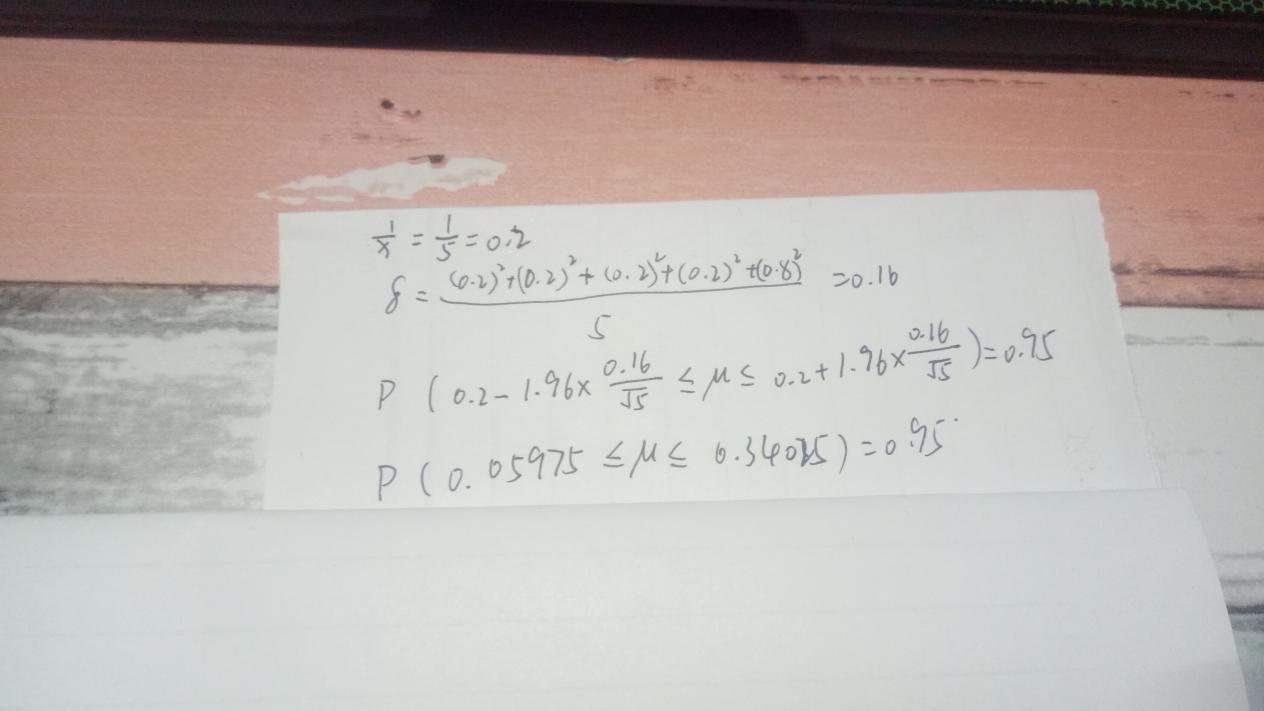 1/x = 1/5 = 0.2
δ = ((0.2)²+(0.2)²+(0.2)²+(0.2)²+(0.8)²)/5 =0.16
P (0.2-1.96×0.16/√5 ≤μ≤ 0.2+1.96×0.16/√5)=0.95
P(0.05975 ≤μ≤ 0.34025)=0.95